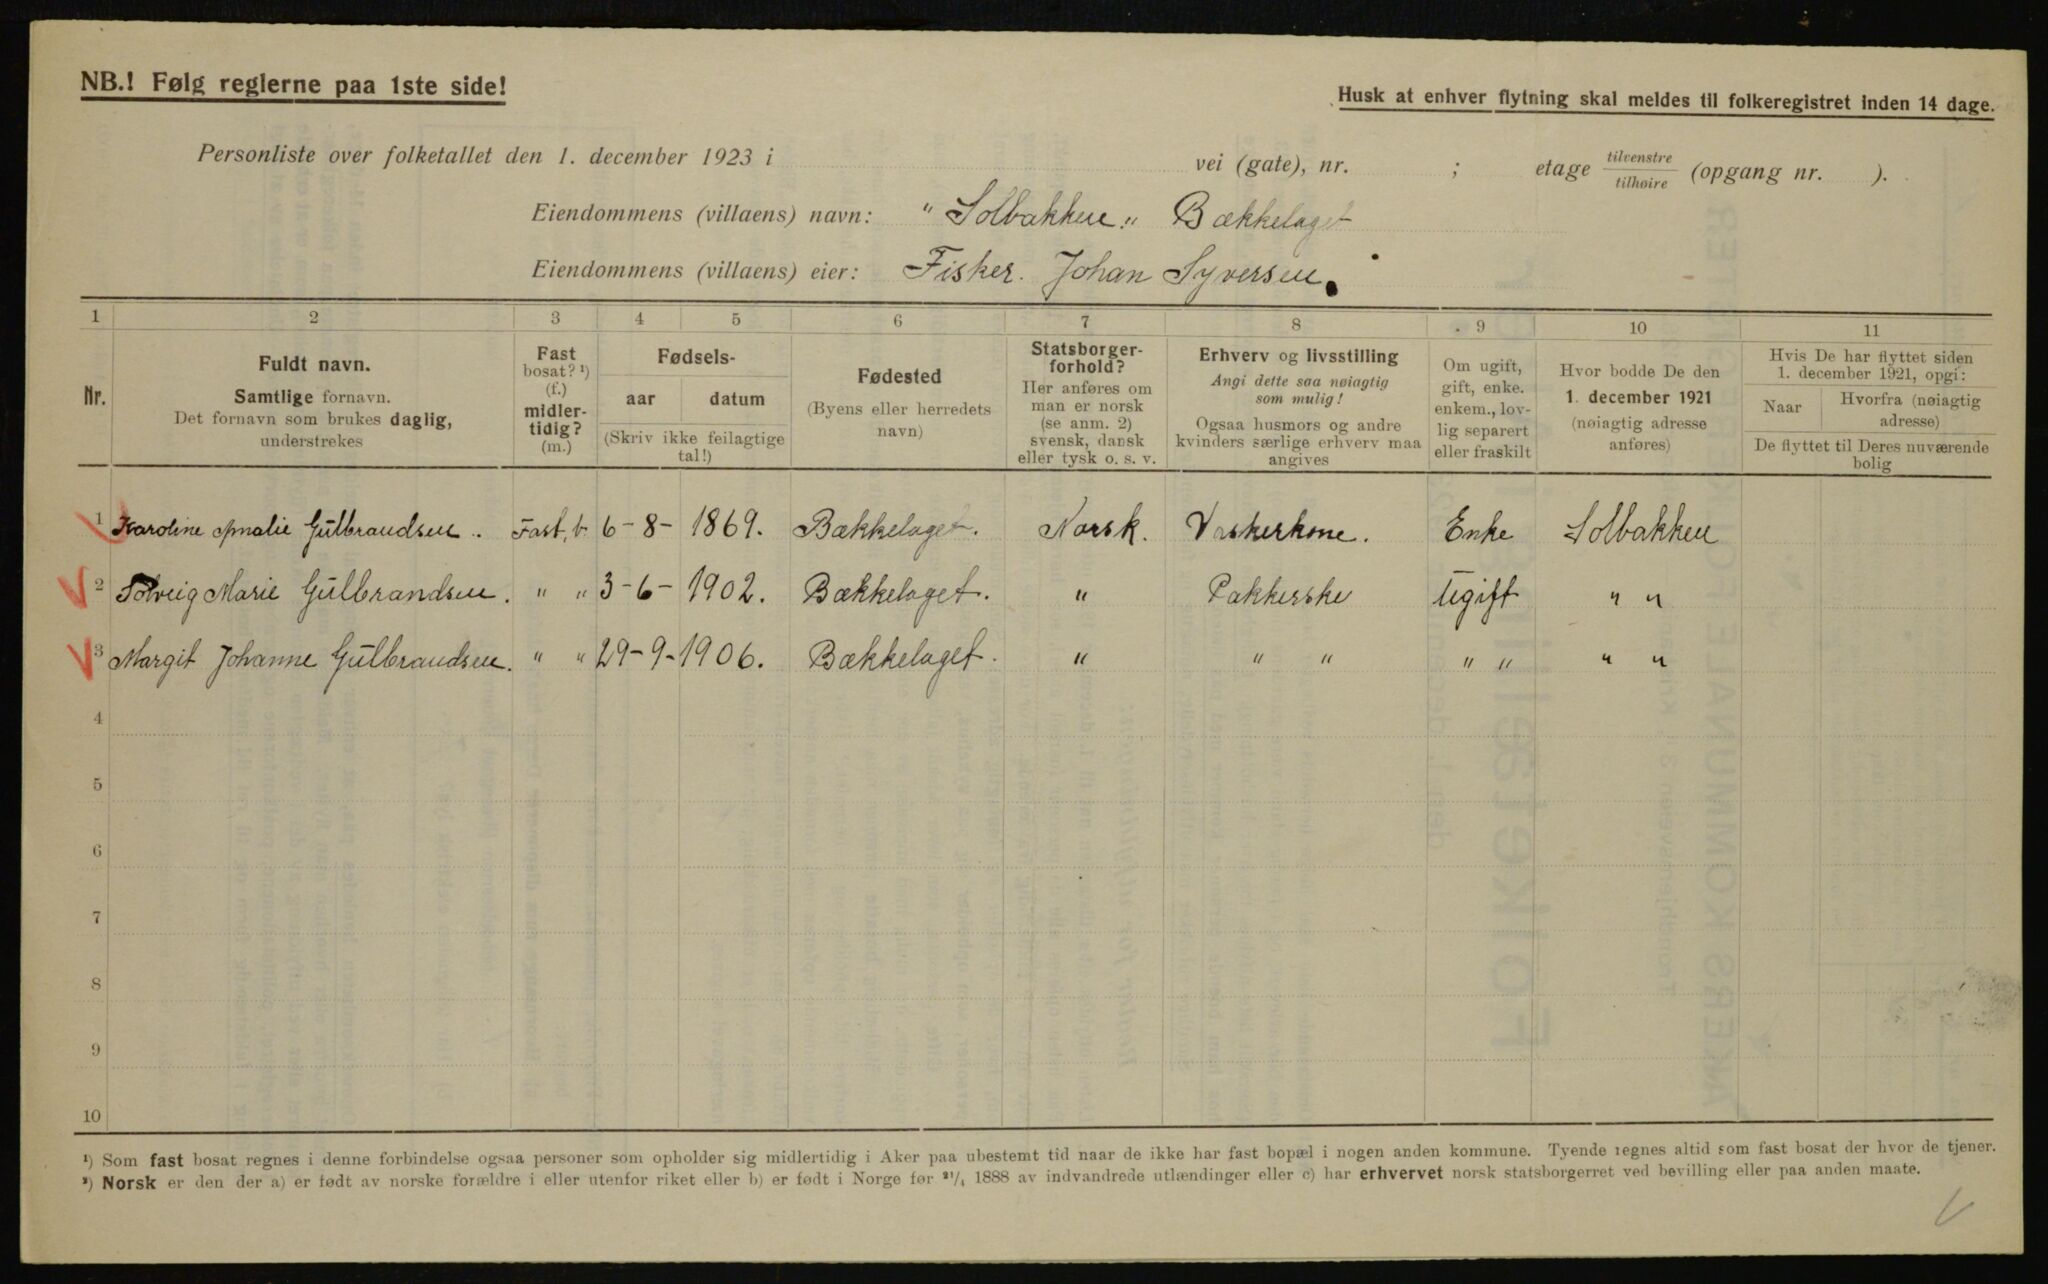 NB.! Følg reglerne paa 1ste side!
Husk at enhver flytning skal meldes til folkeregistret inden 14 dage.
Personliste over folketallet den 1. december 1923 i vei (gate), nr. ; etage tilvenstre tilhøire (opgang nr. ).
Eiendommens (villaens) navn: "Solbakken" Bækkelaget
Eiendommens (villaens) eier: Fisker. Johan Syversen.
1 2 3 4 5 6 7 8 9 10 11
Nr.
Fuldt navn.
Samtlige fornavn.
Det fornavn som brukes daglig,
understrekes
Fast
bosat? ¹)
(f.)
midler-
tidig?
(m.)
Fødsels-
aar datum
(Skriv ikke feilagtige
tal!)
Fødested
(Byens eller herredets
navn)
Statsborger-
forhold?
Her anføres om
man er norsk
(se anm. 2)
svensk, dansk
eller tysk o. s. v.
Erhverv og livsstilling
Angi dette saa nøiagtig
som mulig!
Ogsaa husmors og andre
kvinders særlige erhverv maa
angives
Om ugift,
gift, enke.
enkem., lov-
lig separert
eller fraskilt
Hvor bodde De den
1. december 1921
(nøiagtig adresse
anføres)
Hvis De har flyttet siden
1. december 1921, opgi:
Naar
Hvorfra (nøiagtig
adresse)
De flyttet til Deres nuværende
bolig
1 Karoline Amalie Gulbrandsen. Fast, b. 6-8- 1869. Bækkelaget. Norsk. Vaskerkone. Enke Solbakken
2 Solveig Marie Gulbrandsen. " " 3-6- 1902. Bækkelaget. " Pakkerske Ugift " "
3 Margit Johanne Gulbrandsen. " " 29-9- 1906. Bækkelaget. " " " " " " "
4
5
6
7
8
9
10
¹) Som fast bosat regnes i denne forbindelse ogsaa personer som opholder sig midlertidig i Aker paa ubestemt tid naar de ikke har fast bopæl i nogen anden kommune. Tyende regnes altid som fast bosat der hvor de tjener.
²) Norsk er den der a) er født av norske forældre i eller utenfor riket eller b) er født i Norge før ²¹/₄ 1888 av indvandrede utlændinger eller c) har erhvervet norsk statsborgerret ved bevilling eller paa anden maate.